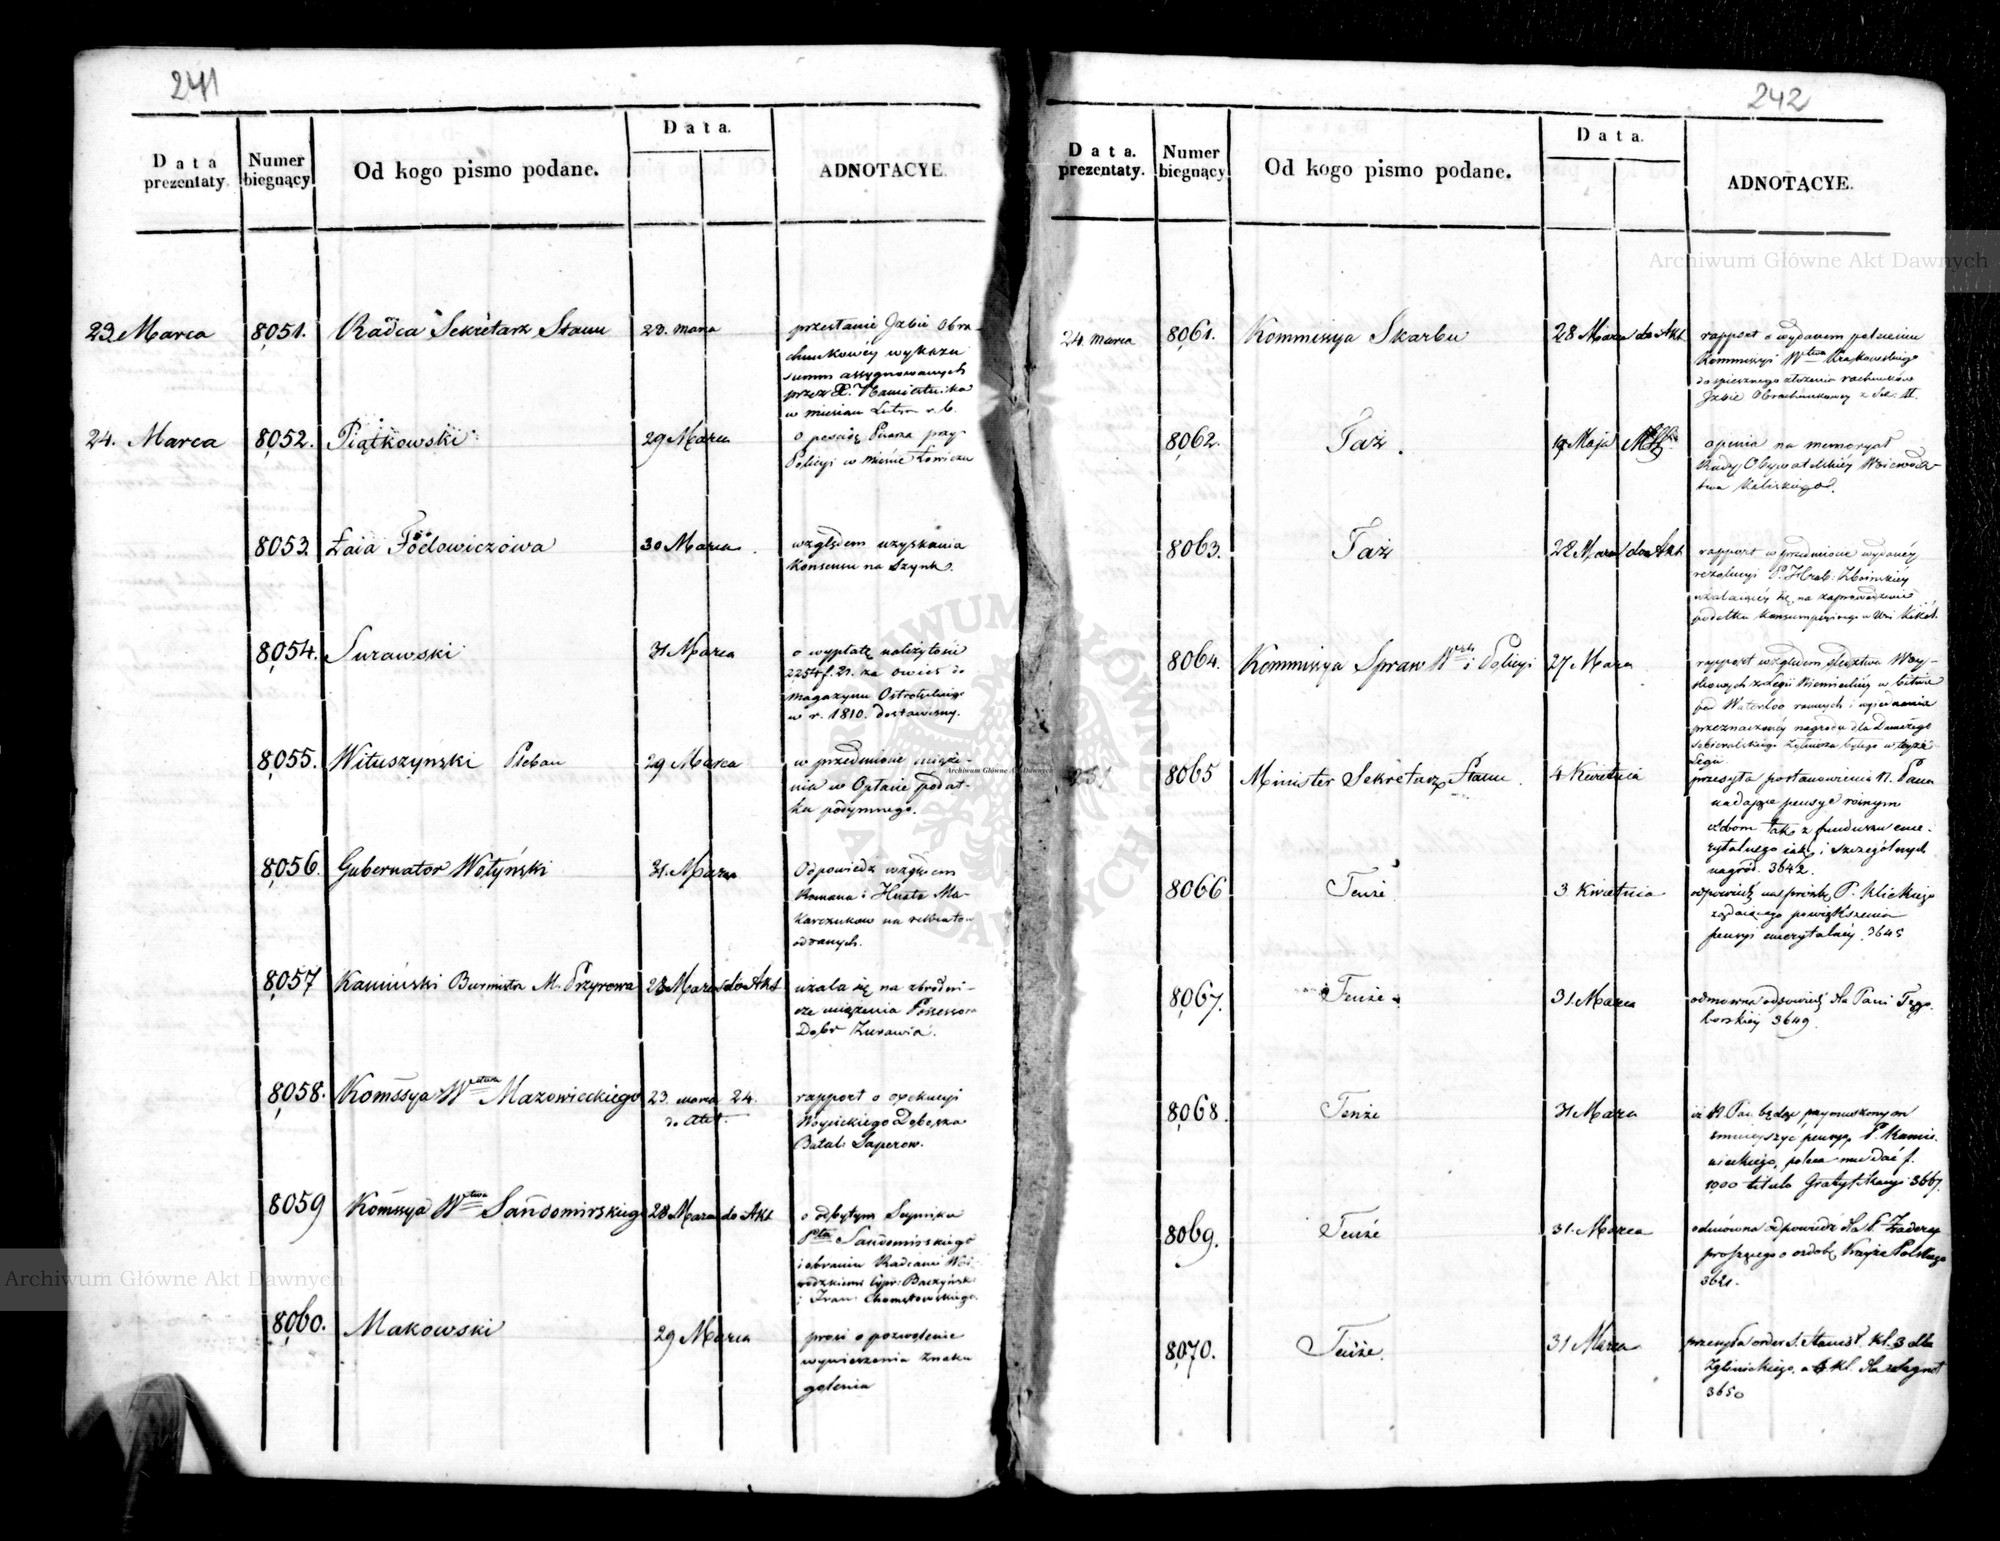 241
Data prezentaty.
Numer biegnący
Od kogo pismo podane.
Data.
ADNOTACYE.
23 Marca
8051.
Radca Sekretarz Stanu
28. marca
przesłanie Jzbie Obra-
chunkowéy wykazu
summ assygnowanych
przez X. Namiestnika
w miesiącu Lutym r. b.
24. Marca
8052.
Piątkowski
29 Marca
o posadę Pisarza przy
Policyi w mieście Łowiczu
8053.
30 Marca
względem uzyskania
konsensu na Szynk.
8054.
Surawski
31 Marca
o wypłatę należytości
za owies do
magazynu
w r. 1810. dostawiony.
8055.
Wituszyński Pleban
29 Marca
w przedmiocie
w Opłacie podat-
ku podymnego.
8056.
Gubernator Wołyński
31. Marca
Odpowiedź względem
Romana i
Makarczuków na rekrutów
odzanych.
8057
Kamiński Burmistrz M. Przyrowa
23 Marca do Akt
użala się na zbrodni-
cze Possessora
Dóbr Żurawia.
8058.
Kommssya Wztwa Mazowieckiego
23. marca 24.
do Akt.
rapport o exekucyi
Batal: Saperów.
8059
Kommssya Wztwa Sandomirskiego
28 Marca do Akt
o odbytym Seymiku
Ptu Sandomirskiego
i obraniu Radcami Wo-
jewódzkiemi Cypr: Baczyński
i Fran: Chomętowskiego.
8060.
Makowski
29 Marca
prosi o pozwolenie
wywieszenia Znaku
golenia
242
Data. prezentaty.
Numer biegnący
Od kogo pismo podane.
Data.
ADNOTACYE.
24. marca
8061.
Kommissya Skarbu
28 Marca do Akt
rapport o wydanem poleceniu
Kommissyi Wztwa Krakowskiego
do spiesznego złożenia rachunków
Jzbie Obrachunkowey z
8062.
Taż.
19 Maja
opinia na memoryał
Rady Obywatelskiéy Woiewódz-
twa Kaliskiego.
8063.
Taż
28 Marca do Akt
rapport w przedmiocie wydanéy
rezolucyi P. Hrab:
użalaiącéy się na zaprowadzenie
podatku konsumpcyinego w
8064.
Kommissya Spraw Wewn i Policyi
27 Marca
rapport względem śledztwa Woy-
skowych z Legii Niemieckiéy w bitwie
pod Waterloo rannych i
przeznaczonéy nagrody dla
Legii
8065
Minister Sekretarz Stanu.
4 Kwietnia
przesyła postanowienia N. Pana
nadaiące pensye różnym
osobom tak z funduszu eme-
rytalnego iako i szczególnych
nagród. 3642.
8066
Tenże
3 Kwietnia
odpowiedź na prośbę P. Klickiego
żądaiącego powiększenia
pensyi emerytalnéy. 3645
8067.
Tenże.
31. Marca
odmowna odpowiedź dla Pani Tęgo-
borskiéy 3649.
8068.
Tenże
31 Marca
iż N. Pan będąc przymuszonym
zmnieyszyć pensyę P. Kamie-
nieckiego, poleca mu dać f.
1000 titulo Gratyfikacyi 3667.
8069.
Tenże
31. Marca
odmówna odpowiedź dla P.
proszącego o ozdobę Krzyża Polskiego
3621.
8070.
Tenże.
31 Marca
przesyła order S. Stanisł. kl. 3 dla
Zglinickiego, a 4 kl. dla
3650
Archiwum Główne Akt Dawnych
Archiwum Główne Akt Dawnych
Archiwum Główne Akt Dawnych
ARCHIWUM GŁÓWNE AKT DAWNYCH